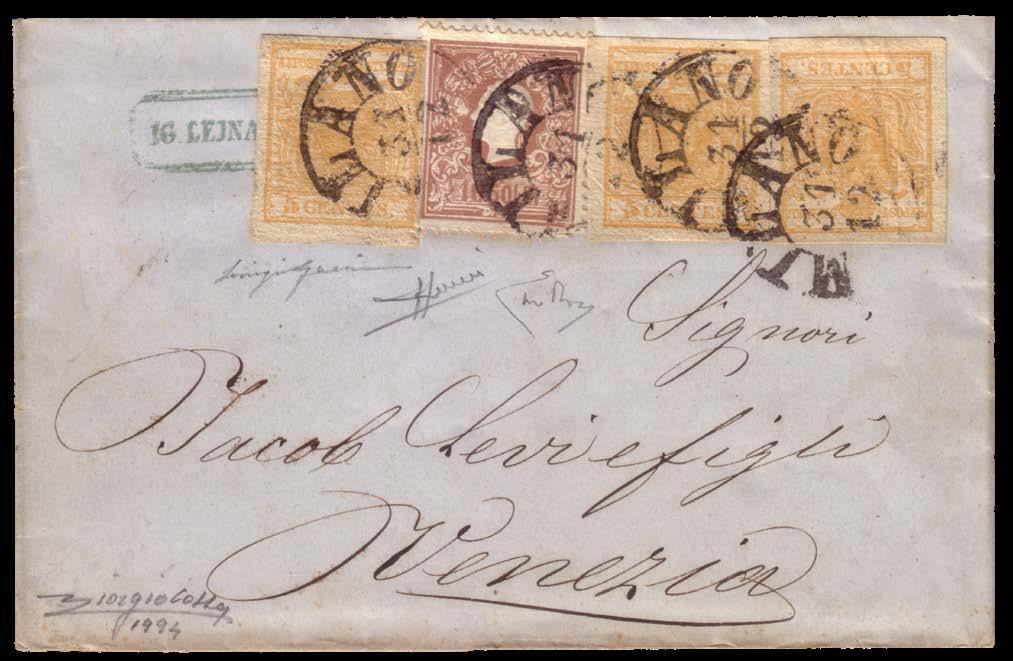 IG. LEJNA
MILANO
31
12
MILANO
31
MILANO
31
12
MILANO
31
12
5 CENTES
5 CENTES
5 CENTES
Signori
Jacob Levi e figli
Venezia
Giorgio Colla
1994